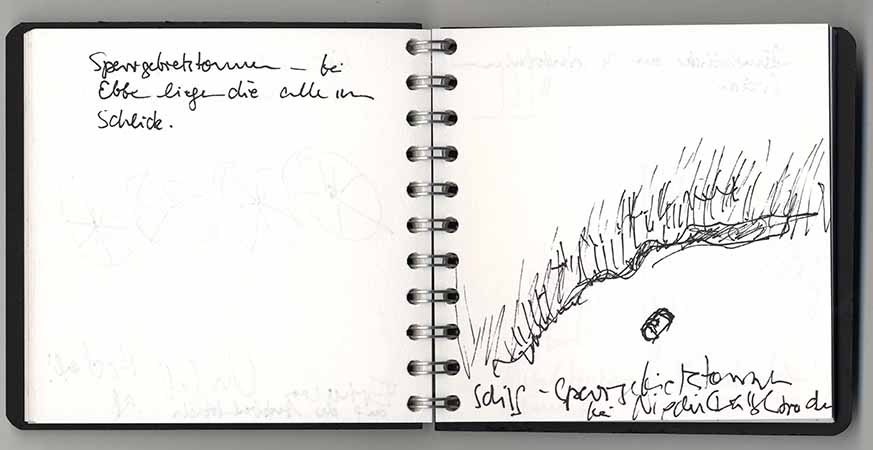 Sperrgebietstonnen – bei
Ebbe liegen die alle im
Schlick.
Schilf - Sperrgebietstonnen
bei